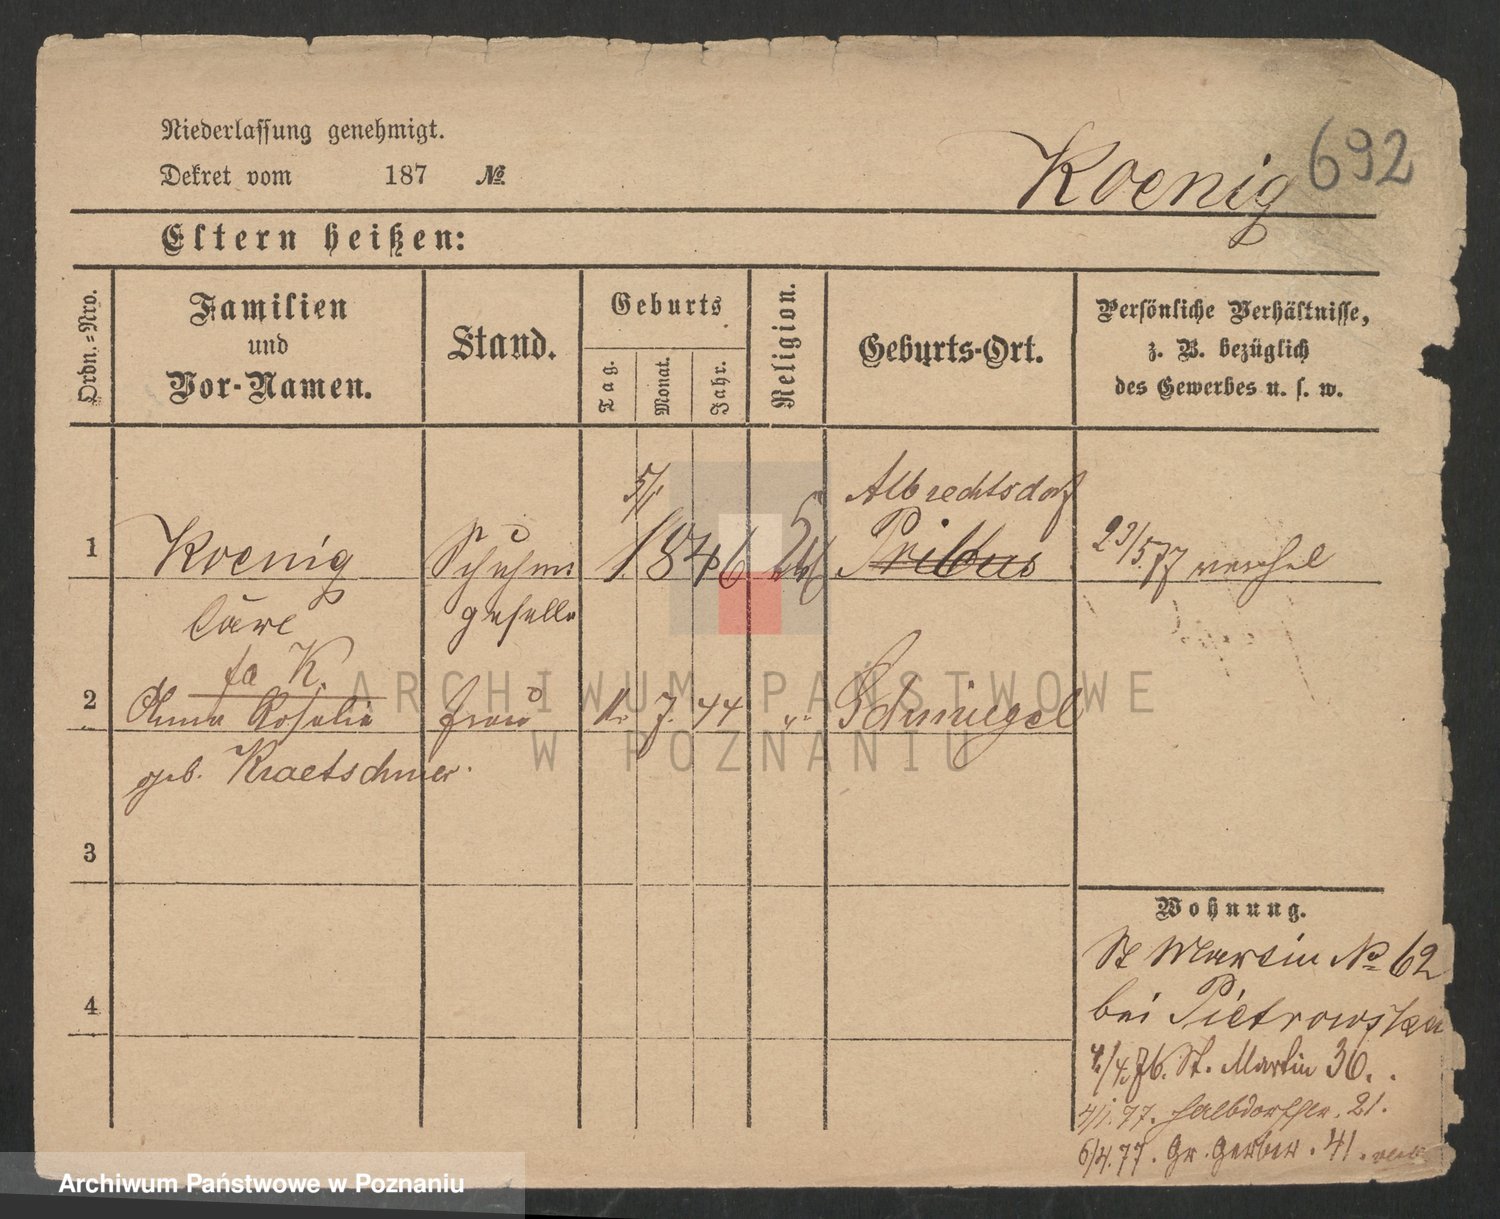 692
Niederlassung genehmigt.
Dekret vom 187 №
Koenig
Eltern heißen:
Ordn.-Nro.
Familien
und
Vor-Namen.
Stand.
Geburts
Tag.
Monat.
Jahr.
Religion.
Geburts-Ort.
Persönliche Verhältnisse,
z. B. bezüglich
des Gewerbes u. s. w.
5/1
Albrechtsdorf
1 Koenig Schuhm 1846 Pribus 23/5 77
Carl geselle
K.
2 Anna Rosalie frau 1. 7. 44 Schmiegel
geb. Kraetschmer.
3
4
Wohnung.
St Martin No 62
bei Pietrowska
4/4. 76. St. Martin 36.
4/1. 77. Halbdorfstr. 21.
6/4. 77. Gr. Gerber. 41.
ARCHIWUM PAŃSTWOWE
W POZNANIU
Archiwum Państwowe w Poznaniu